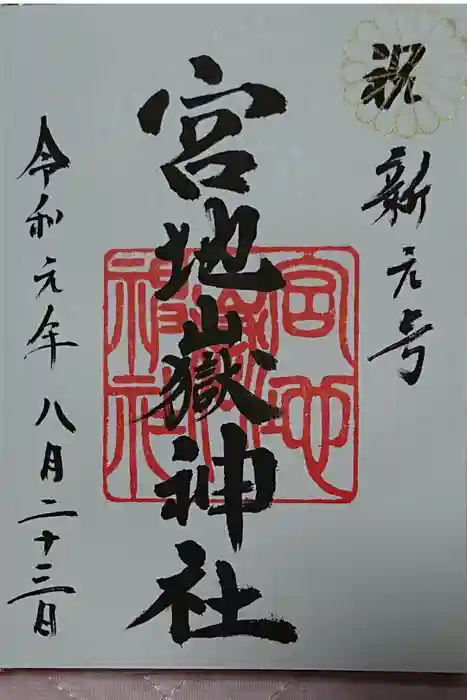 祝 新元号
宮地嶽神社
宮地嶽神社
令和元年八月二十三日